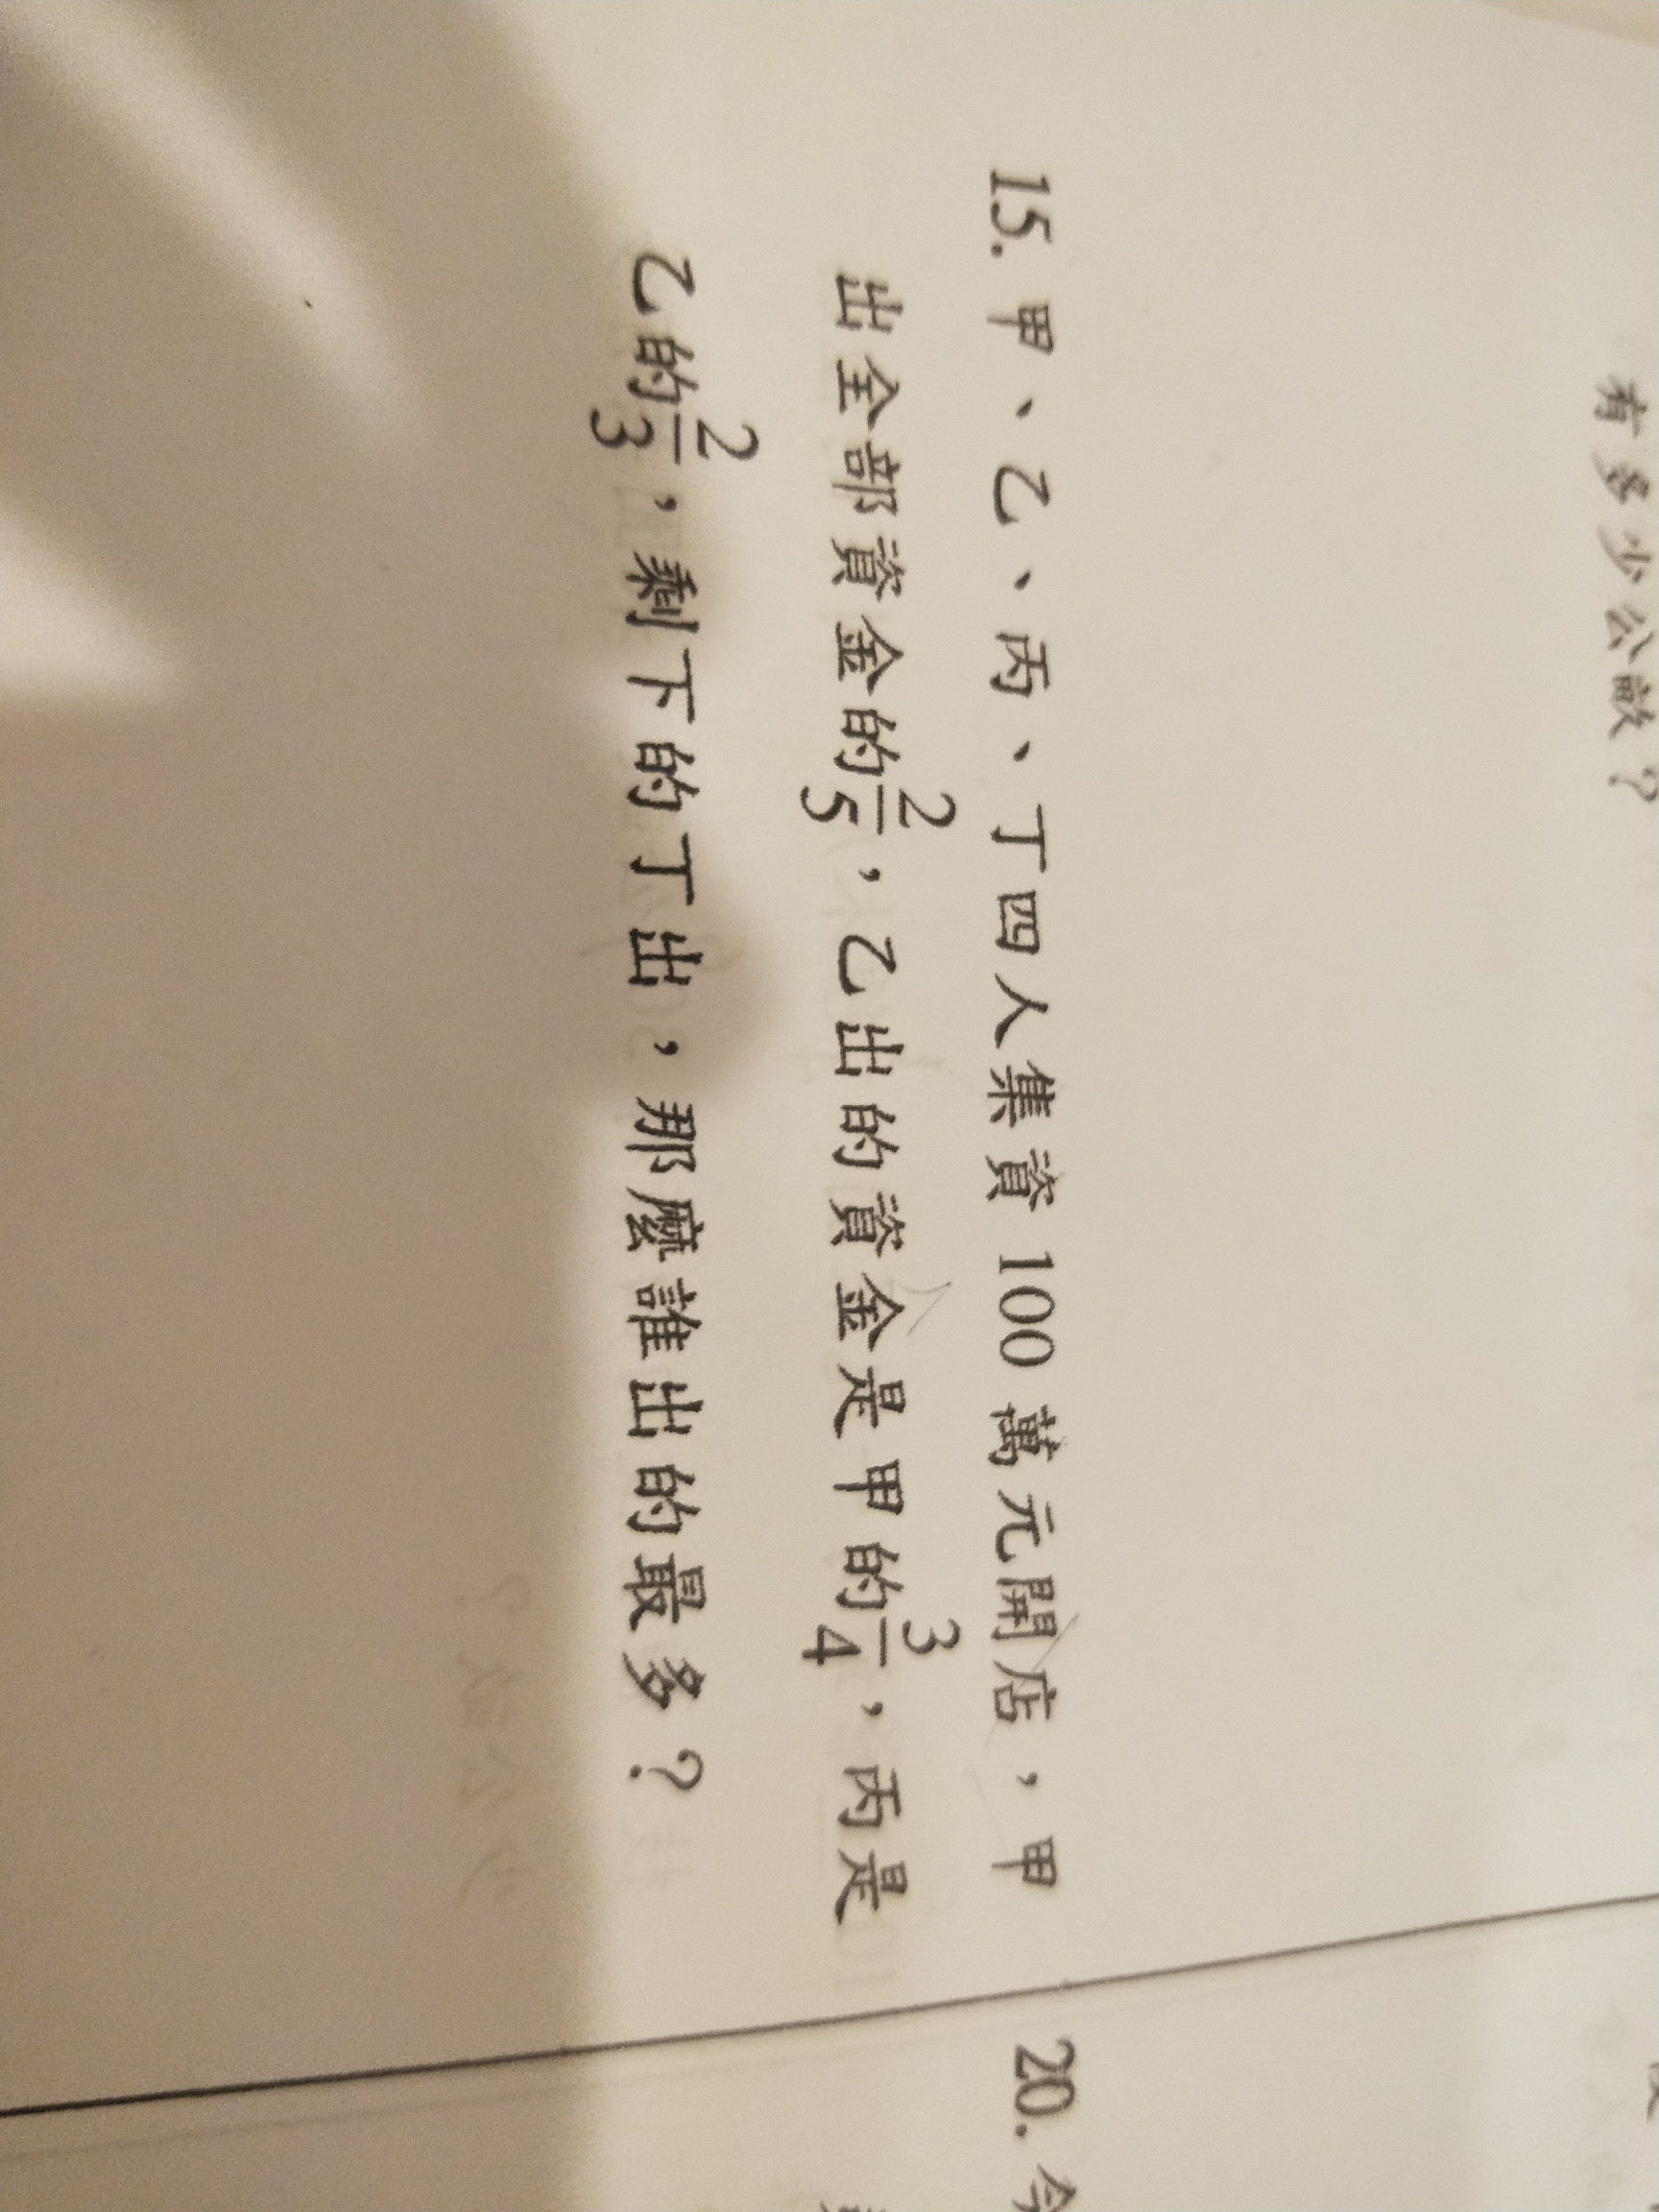 有多少公畝？
15. 甲、乙、丙、丁四人集資 100 萬元開店，甲
出全部資金的2/5，乙出的資金是甲的3/4，丙是
乙的2/3，剩下的丁出，那麼誰出的最多？
20. 今